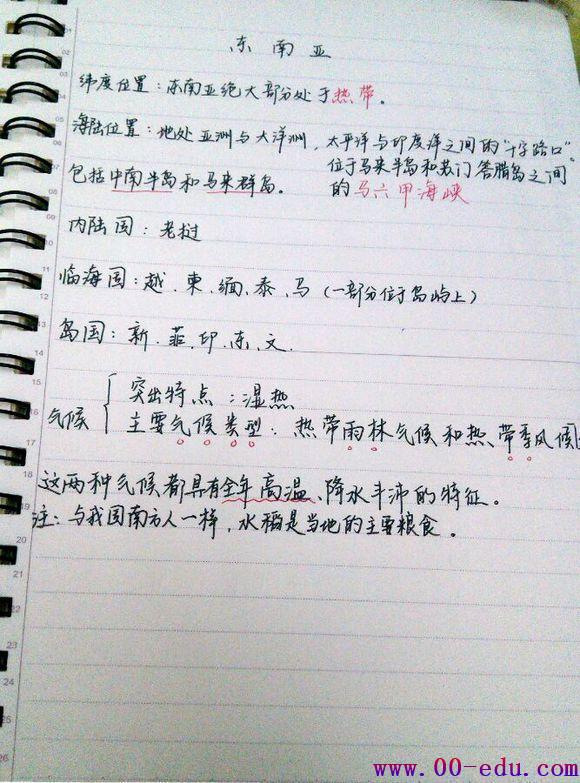 东南亚
纬度位置：东南亚绝大部分处于热带。
海陆位置：地处亚洲与大洋洲，太平洋与印度洋之间的“十字路口”
位于马来半岛和苏门答腊岛之间
的马六甲海峡
包括中南半岛和马来群岛。
内陆国：老挝
临海国：越、柬、缅、泰、马（一部分位于岛屿上）
岛国：新、菲、印、东、文、
气候
突出特点：湿热
主要气候类型：热带雨林气候和热带季风候
这两种气候都具有全年高温、降水丰沛的特征。
注：与我国南方人一样，水稻是当地的主要粮食。
www.00-edu.com